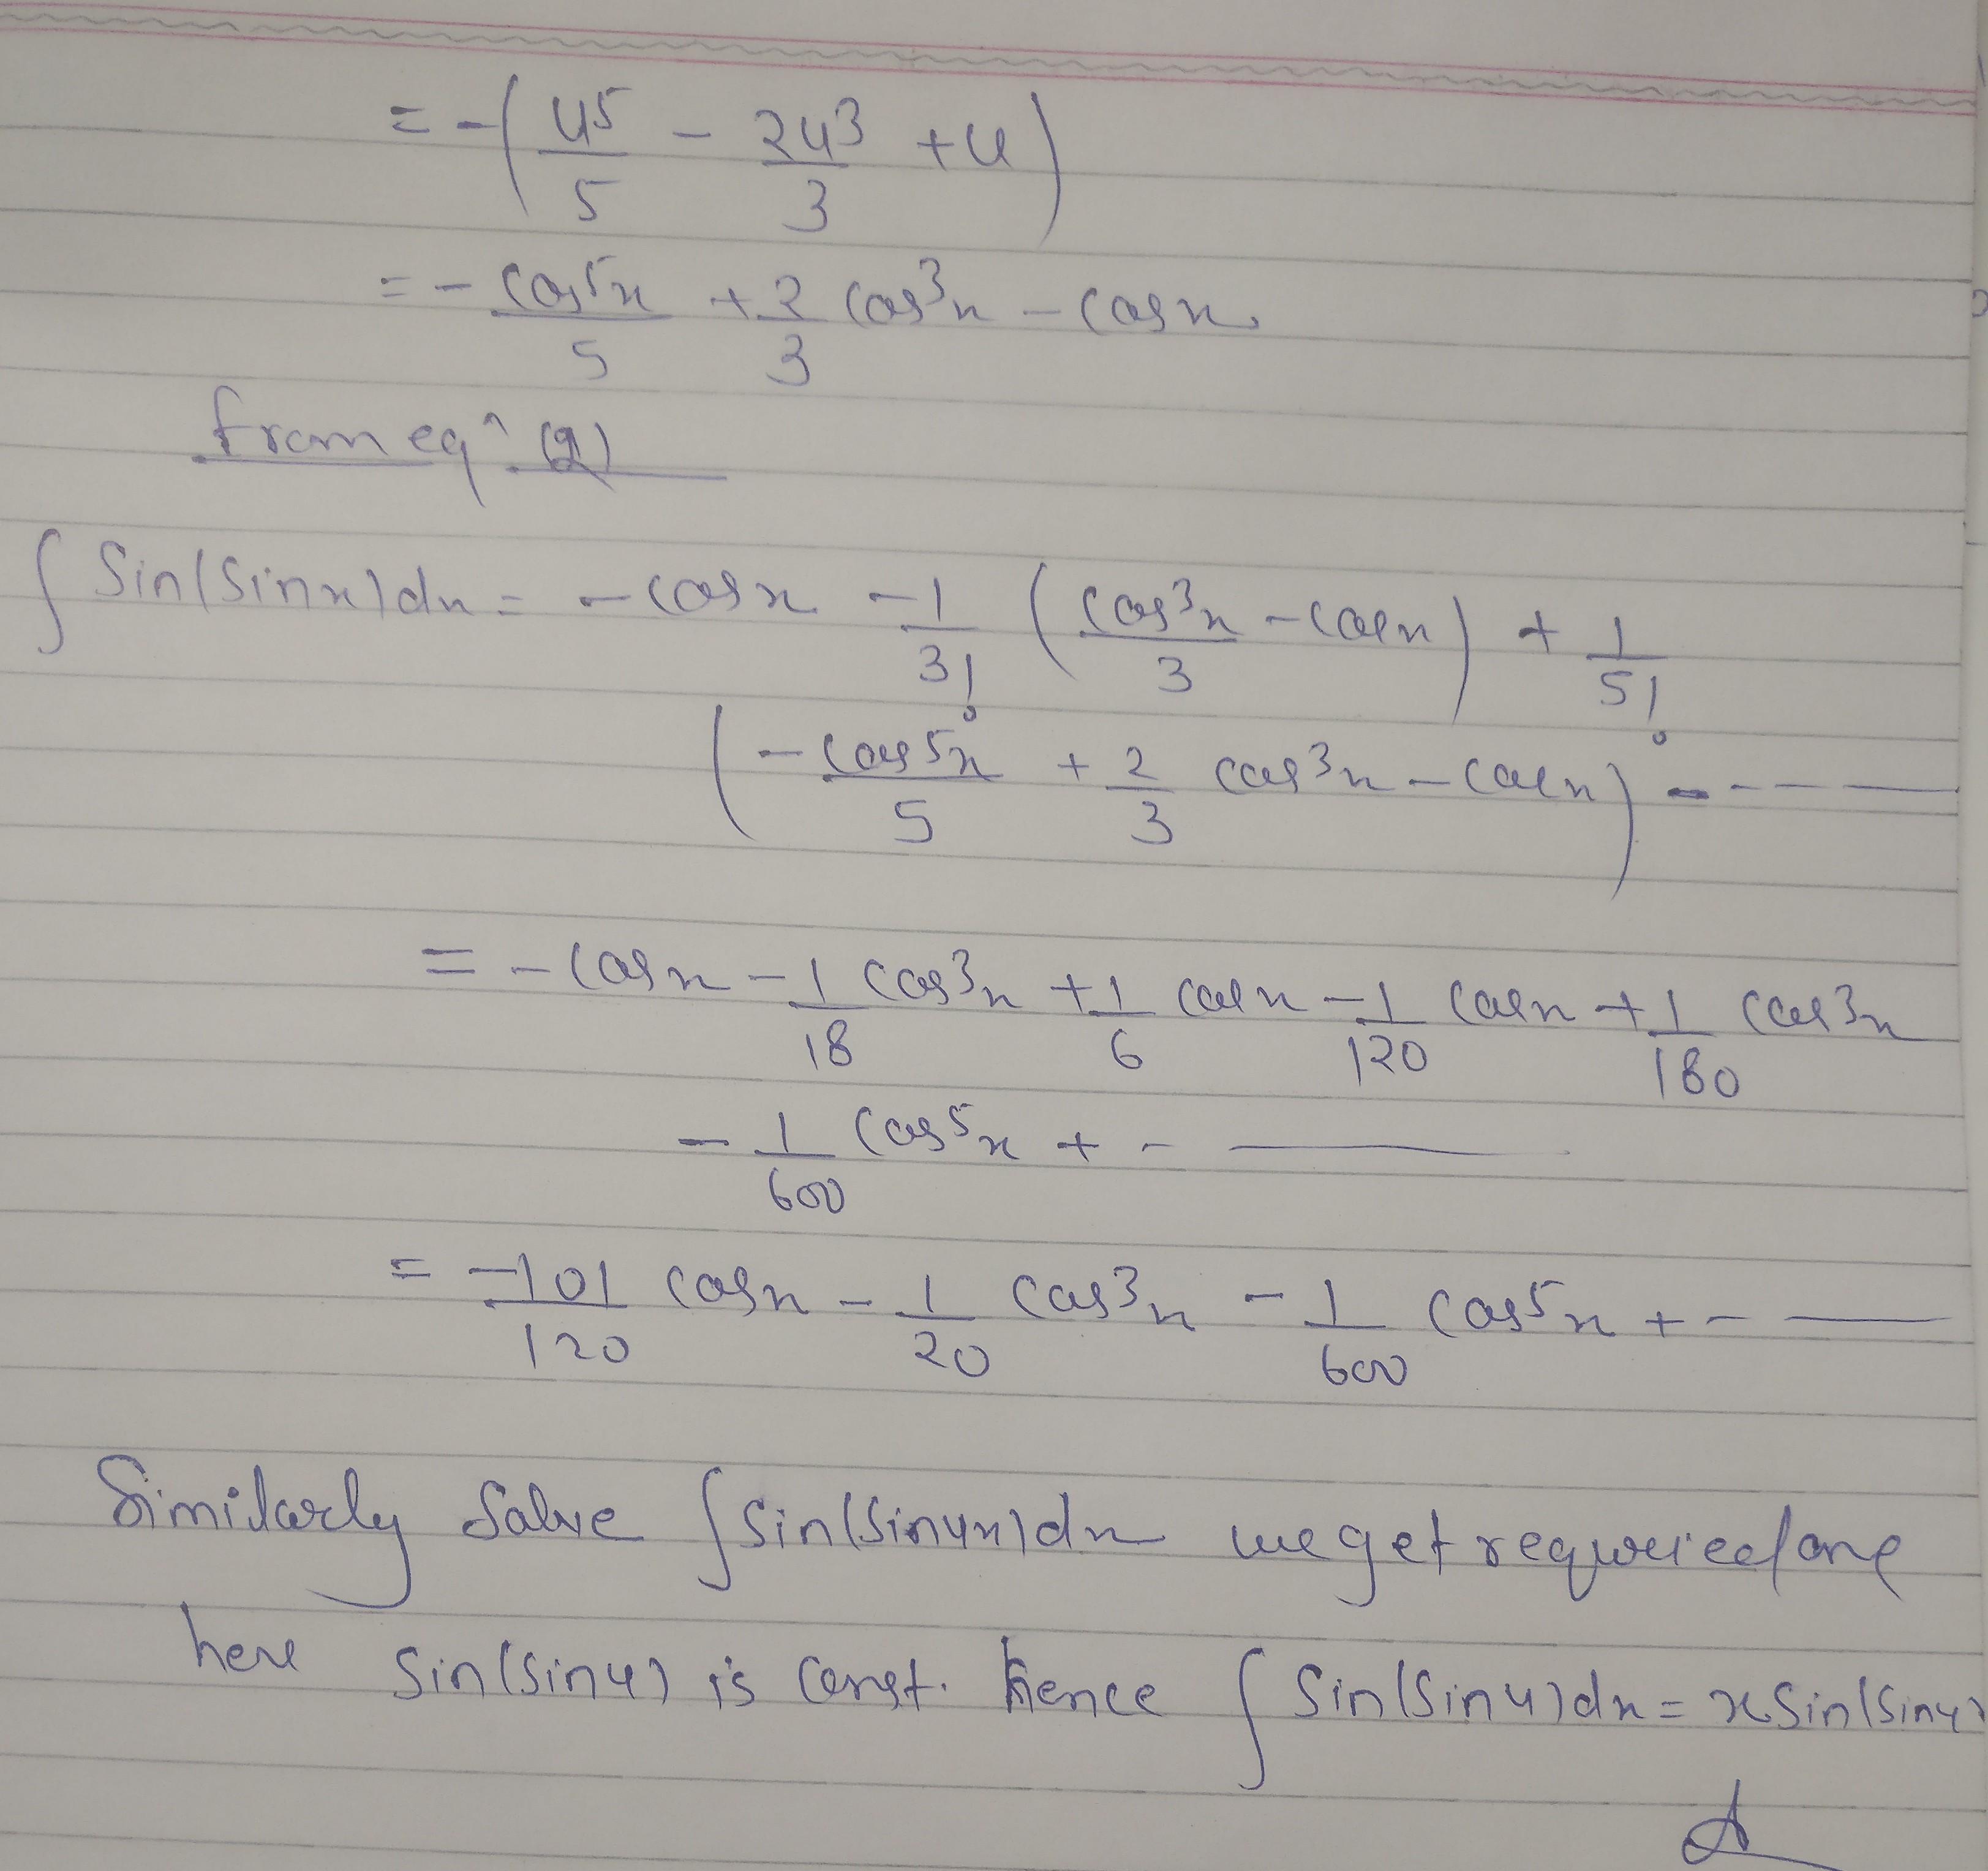 = -(u⁵/5 - 2u³/3 + u)
= - cos⁵x/5 + 2/3 cos³x - cosx.
from eqⁿ (2)
∫ Sin(Sinx)dx = - cosx - 1/3! (cos³x/3 - cosx) + 1/5!
(- cos⁵x/5 + 2/3 cos³x - cosx) - - - -
= - cosx - 1/18 cos³x + 1/6 cosx - 1/120 cosx + 1/180 cos³x
- 1/600 cos⁵x + - -
= -101/120 cosx - 1/20 cos³x - 1/600 cos⁵x + - -
Similarly Solve ∫ Sin(Sin4x)dx we get required ans
here Sin(Sin4) is const. hence ∫ Sin(Sin4)dx = x Sin(Sin4)